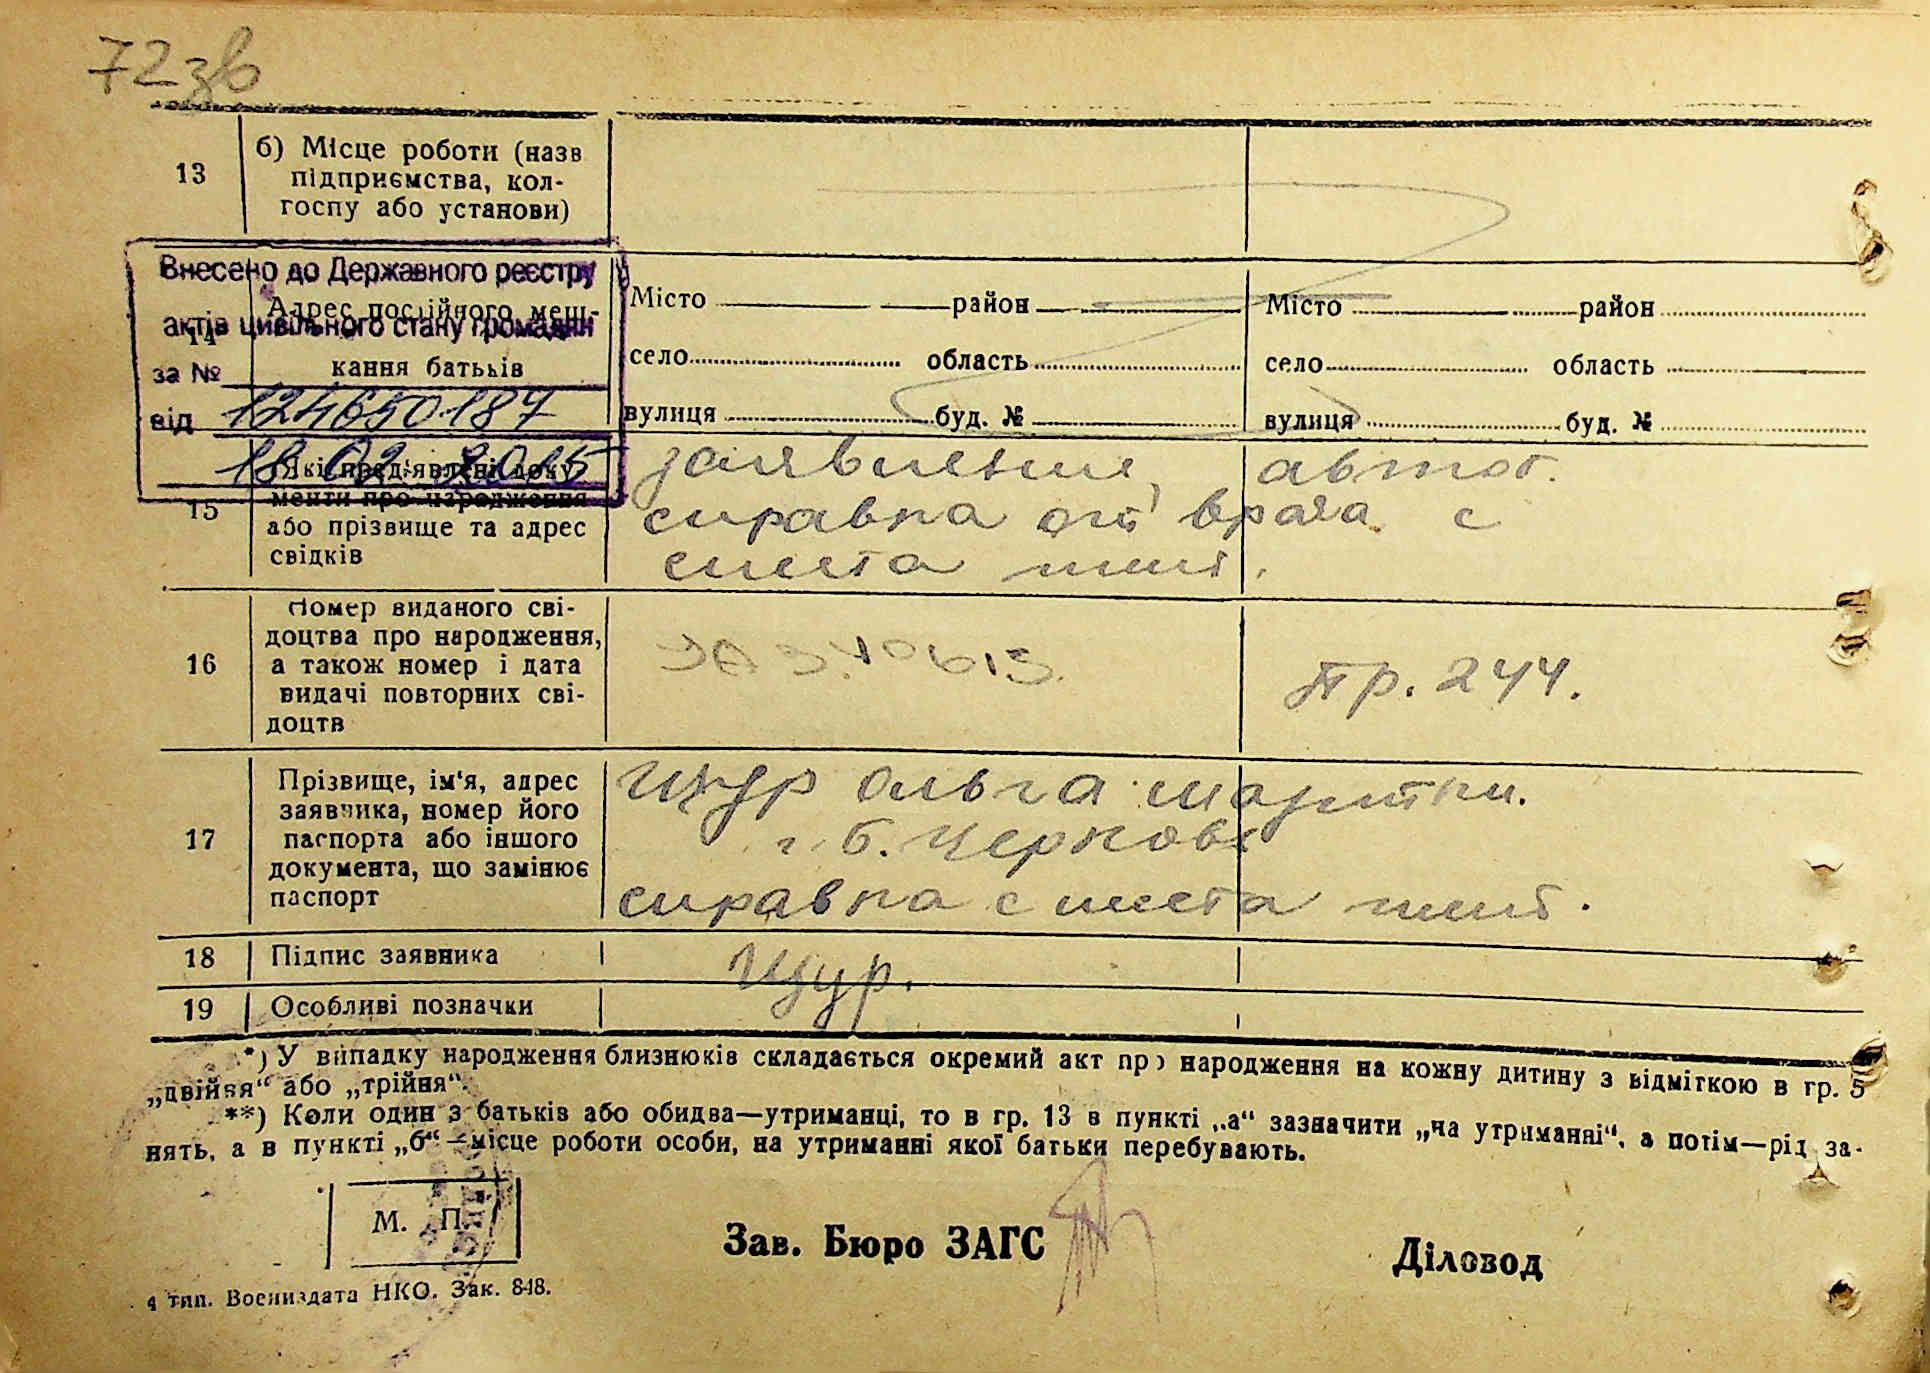 72 зв
13
б) Місце роботи (назв
підприємства, кол-
госпу або установи)
Внесено до Державного реєстру
актів цивільного стану громадян
за № 124650187
від 18 02 2015
14
Адрес постійного меш-
кання батьків
Місто район
село область
вулиця буд. №
Місто район
село область
вулиця буд. №
15
Які пред'явлені доку-
менти про народження
або прізвище та адрес
свідків
заявление, автог.
справка от врача с
места жит.
16
Номер виданого сві-
доцтва про народження,
а також номер і дата
видачі повторних сві-
доцтв
Пр. 244.
17
Прізвище, ім'я, адрес
заявника, номер його
паспорта або іншого
документа, що замінює
паспорт
Щур Ольга
с. Б. Чернов
справка с места жит.
18
Підпис заявника
Щур.
19
Особливі позначки
*) У випадку народження близнюків складається окремий акт про народження на кожну дитину з відміткою в гр. 5
„двійня“ або „трійня“.
**) Коли один з батьків або обидва—утриманці, то в гр. 13 в пункті „а“ зазначити „на утриманні“, а потім—рід за-
нять, а в пункті „б“—місце роботи особи, на утриманні якої батьки перебувають.
М. П.
Зав. Бюро ЗАГС
Діловод
4 тип. Воениздата НКО. Зак. 848.